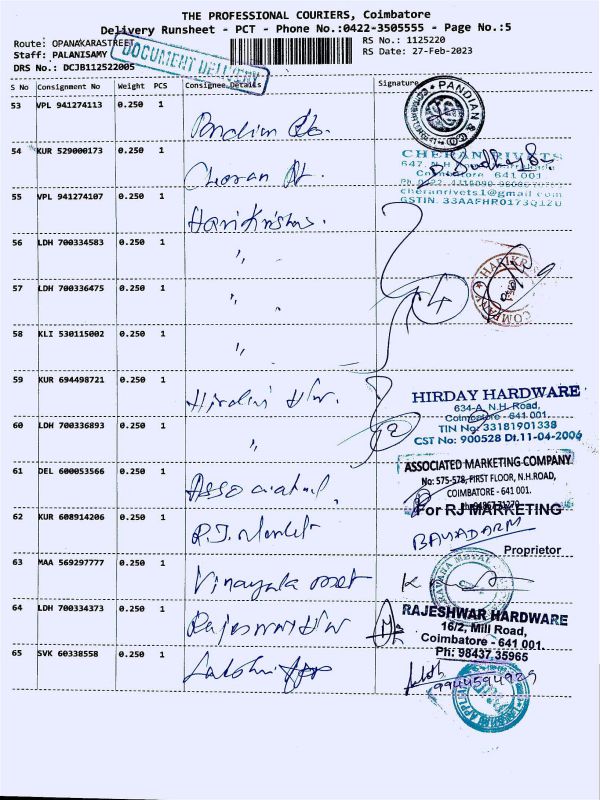 THE PROFESSIONAL COURIERS, Coimbatore
Delivery Runsheet - PCT - Phone No.:0422-3505555 - Page No.:5
Route: OPANAKARASTREET
Staff: PALANISAMY
DRS No.: DCJB112522005
DOCUMENT DELIVERY
RS No.: 1125220
RS Date: 27-Feb-2023
S No Consignment No Weight PCS Consignee Details Signature
53 VPL 941274113 0.250 1 Pandian &Co. PANDIAN &
54 KUR 529000173 0.250 1 Cheran Rt.
CHERAN RIVETS
Coimbatore 641 001
cheranrivets1@gmail.com
GSTIN. 33AAFHR0173Q1ZU
55 VPL 941274107 0.250 1 Harikrishna.
56 LDH 700334583 0.250 1 〃
57 LDH 700336475 0.250 1 〃 4 COMPANY
58 KLI 530115002 0.250 1 〃
59 KUR 694498721 0.250 1 Hirday H/w.
HIRDAY HARDWARE
634-A, N.H. Road,
Coimbatore - 641 001.
TIN No: 33181901338
CST No: 900528 Dt.11-04-2006
60 LDH 700336893 0.250 1 〃 2
61 DEL 600053566 0.250 1
ASSOCIATED MARKETING COMPANY
No: 575-578, FIRST FLOOR, N.H.ROAD,
COIMBATORE - 641 001.
62 KUR 608914206 0.250 1 R.J. Market
For RJ MARKETING
Proprietor
63 MAA 569297777 0.250 1 Vinayaka
64 LDH 700334373 0.250 1 Rajeswar H/w
RAJESHWAR HARDWARE
16/2, Mill Road,
Coimbatore - 641 001.
Ph: 98437 35965
65 SVK 60338558 0.250 1 Lakshmi
9944594929